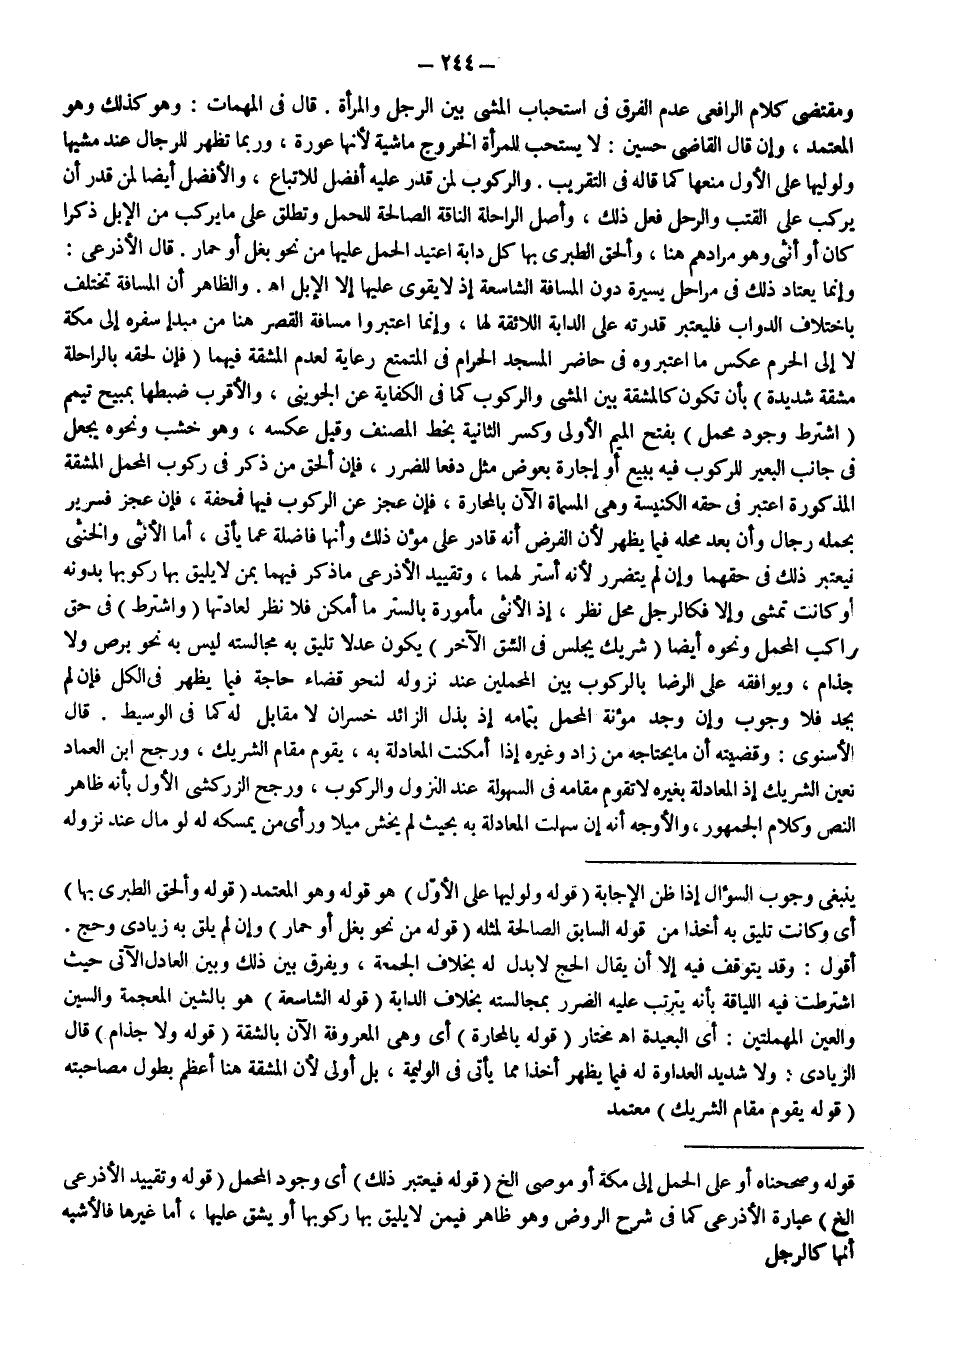 – ٢٤٤ –
ومقتضى كلام الرافعى عدم الفرق فى استحباب المشى بين الرجل والمرأة . قال فى المهمات : وهو كذلك وهو
المعتمد ، وإن قال القاضى حسين : لا يستحب للمرأة الخروج ماشية لأنها عورة ، وربما تظهر للرجال عند مشيها
ولوليها على الأول منعها كما قاله فى التقريب . والركوب لمن قدر عليه أفضل للاتباع ، والأفضل أيضا لمن قدر أن
يركب على القتب والرحل فعل ذلك ، وأصل الراحلة الناقة الصالحة للحمل وتطلق على مايركب من الإبل ذكرا
كان أو أنثى وهو مرادهم هنا ، وألحق الطبرى بها كل دابة اعتيد الحمل عليها من نحو بغل أو حمار . قال الأذرعى :
وإنما يعتاد ذلك فى مراحل يسيرة دون المسافة الشاسعة إذ لايقوى عليها إلا الإبل اه . والظاهر أن المسافة تختلف
باختلاف الدواب فليعتبر قدرته على الدابة اللائقة لها ، وإنما اعتبروا مسافة القصر هنا من مبدإ سفره إلى مكة
لا إلى الحرم عكس ما اعتبروه فى حاضر المسجد الحرام فى المتمتع رعاية لعدم المشقة فيهما ( فإن لحقه بالراحلة
مشقة شديدة ) بأن تكون كالمشقة بين المشى والركوب كما فى الكفاية عن الجوينى ، والأقرب ضبطها بمبيح تيمم
( اشترط وجود محمل ) بفتح الميم الأولى وكسر الثانية بخط المصنف وقيل عكسه ، وهو خشب ونحوه يجعل
فى جانب البعير للركوب فيه ببيع أو إجارة بعوض مثل دفعا للضرر ، فإن ألحق من ذكر فى ركوب المحمل المشقة
المذكورة اعتبر فى حقه الكنيسة وهى المسماة الآن بالمحارة ، فإن عجز عن الركوب فيها فمحفة ، فإن عجز فسرير
يحمله رجال وأن بعد محله فيما يظهر لأن الفرض أنه قادر على مؤن ذلك وأنها فاضلة عما يأتى ، أما الأنثى والخنثى
نيعتبر ذلك فى حقهما وإن لم يتضرر لأنه أستر لهما ، وتقييد الأذرعى ماذكر فيهما بمن لايليق بها ركوبها بدونه
أو كانت تمشى وإلا فكالرجل محل نظر ، إذ الأنثى مأمورة بالستر ما أمكن فلا نظر لعادتها ( واشترط ) فى حق
راكب المحمل ونحوه أيضا ( شريك يجلس فى الشق الآخر ) يكون عدلا تليق به مجالسته ليس به نحو برص ولا
جذام ، ويوافقه على الرضا بالركوب بين المحملين عند نزوله لنحو قضاء حاجة فيما يظهر فى الكل فإن لم
يجد فلا وجوب وإن وجد مؤنة المحمل بتمامه إذ بذل الزائد خسران لا مقابل له كما فى الوسيط . قال
الأسنوى : وقضيته أن مايحتاجه من زاد وغيره إذا أمكنت المعادلة به ، يقوم مقام الشريك ، ورجح ابن العماد
نعين الشريك إذ المعادلة بغيره لاتقوم مقامه فى السهولة عند النزول والركوب ، ورجح الزركشى الأول بأنه ظاهر
النص وكلام الجمهور ، والأوجه أنه إن سهلت المعادلة به بحيث لم يخش ميلا ورأى من يمسكه له لو مال عند نزوله
ينبغى وجوب السؤال إذا ظن الإجابة ( قوله ولوليها على الأوّل ) هو قوله وهو المعتمد ( قوله وألحق الطبرى بها )
أى وكانت تليق به أخذا من قوله السابق الصالحة لمثله ( قوله من نحو بغل أو حمار ) وإن لم يلق به زيادى وحج .
أقول : وقد يتوقف فيه إلا أن يقال الحج لابدل له بخلاف الجمعة ، ويفرق بين ذلك وبين العادل الآتى حيث
اشترطت فيه اللياقة بأنه يترتب عليه الضرر بمجالسته بخلاف الدابة ( قوله الشاسعة ) هو بالشين المعجمة والسين
والعين المهملتين : أى البعيدة اه مختار ( قوله بالمحارة ) أى وهى المعروفة الآن بالشقة ( قوله ولا جذام ) قال
الزيادى : ولا شديد العداوة له فيما يظهر أخذا مما يأتى فى الوليمة ، بل أولى لأن المشقة هنا أعظم بطول مصاحبته
( قوله يقوم مقام الشريك ) معتمد
قوله وصححناه أو على الحمل إلى مكة أو موصى الخ ( قوله فيعتبر ذلك ) أى وجود المحمل ( قوله وتقييد الأذرعى
الخ ) عبارة الأذرعى كما فى شرح الروض وهو ظاهر فيمن لايليق بها ركوبها أو يشق عليها ، أما غيرها فالأشبه
أنها كالرجل